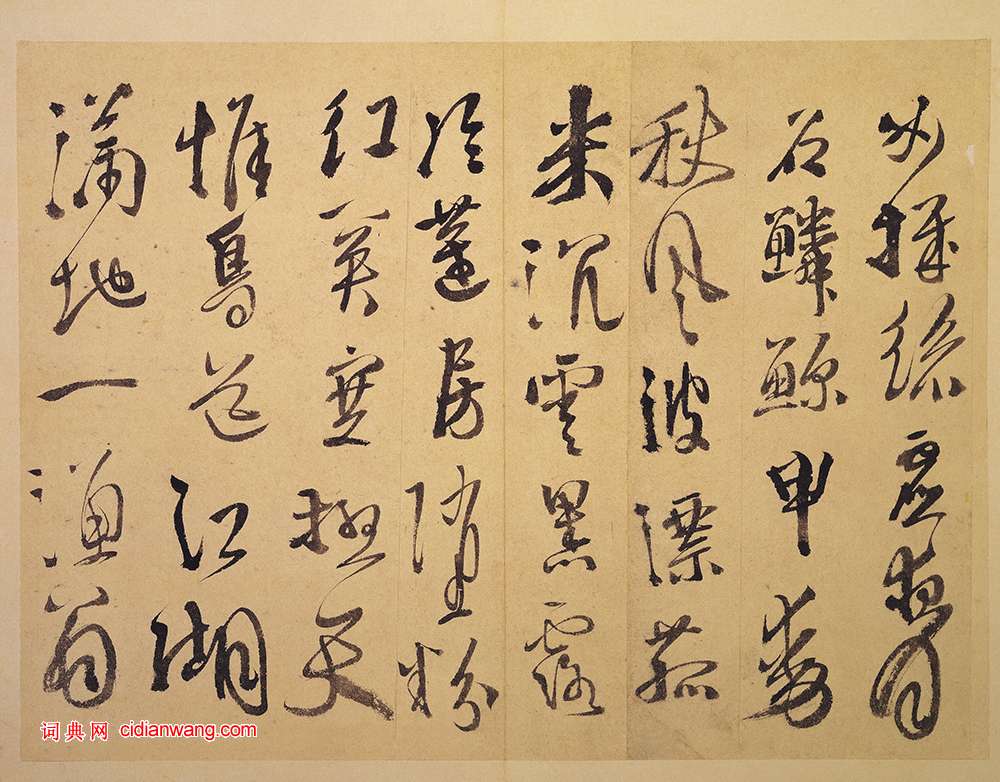 女機絲虛夜月
石鱗鯨甲動
秋風波漂菰
米沉雲黑露
冷蓮房墜粉
紅關塞極天
惟鳥道江湖
滿地一漁翁
词典网 cidianwang.com